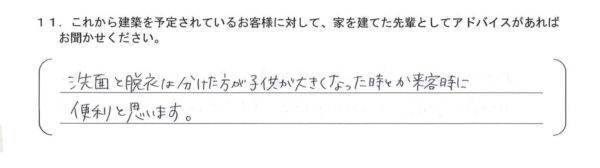 １１．これから建築を予定されているお客様に対して、家を建てた先輩としてアドバイスがあれば
お聞かせください。
洗面と脱衣は分けた方が子供が大きくなった時とか来客時に
便利と思います。